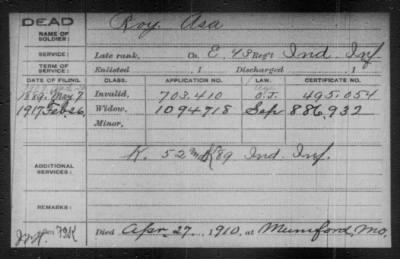 DEAD
NAME OF SOLDIER: Roy Asa
SERVICE: Late rank, Co. E, 48 Reg't Ind. Inf.
TERM OF SERVICE: Enlisted , 1 Discharged , 1
DATE OF FILING. CLASS. APPLICATION NO. LAW. CERTIFICATE NO.
1889, May 7 Invalid, 703.410 O.J. 495.054
1917 Feb. 26. Widow, 1094718 Sep 886.932
Minor,
ADDITIONAL SERVICES: K. 52 & K 89 Ind. Inf.
REMARKS:
Died Apr. 27, 1910, at Mumford, Mo.